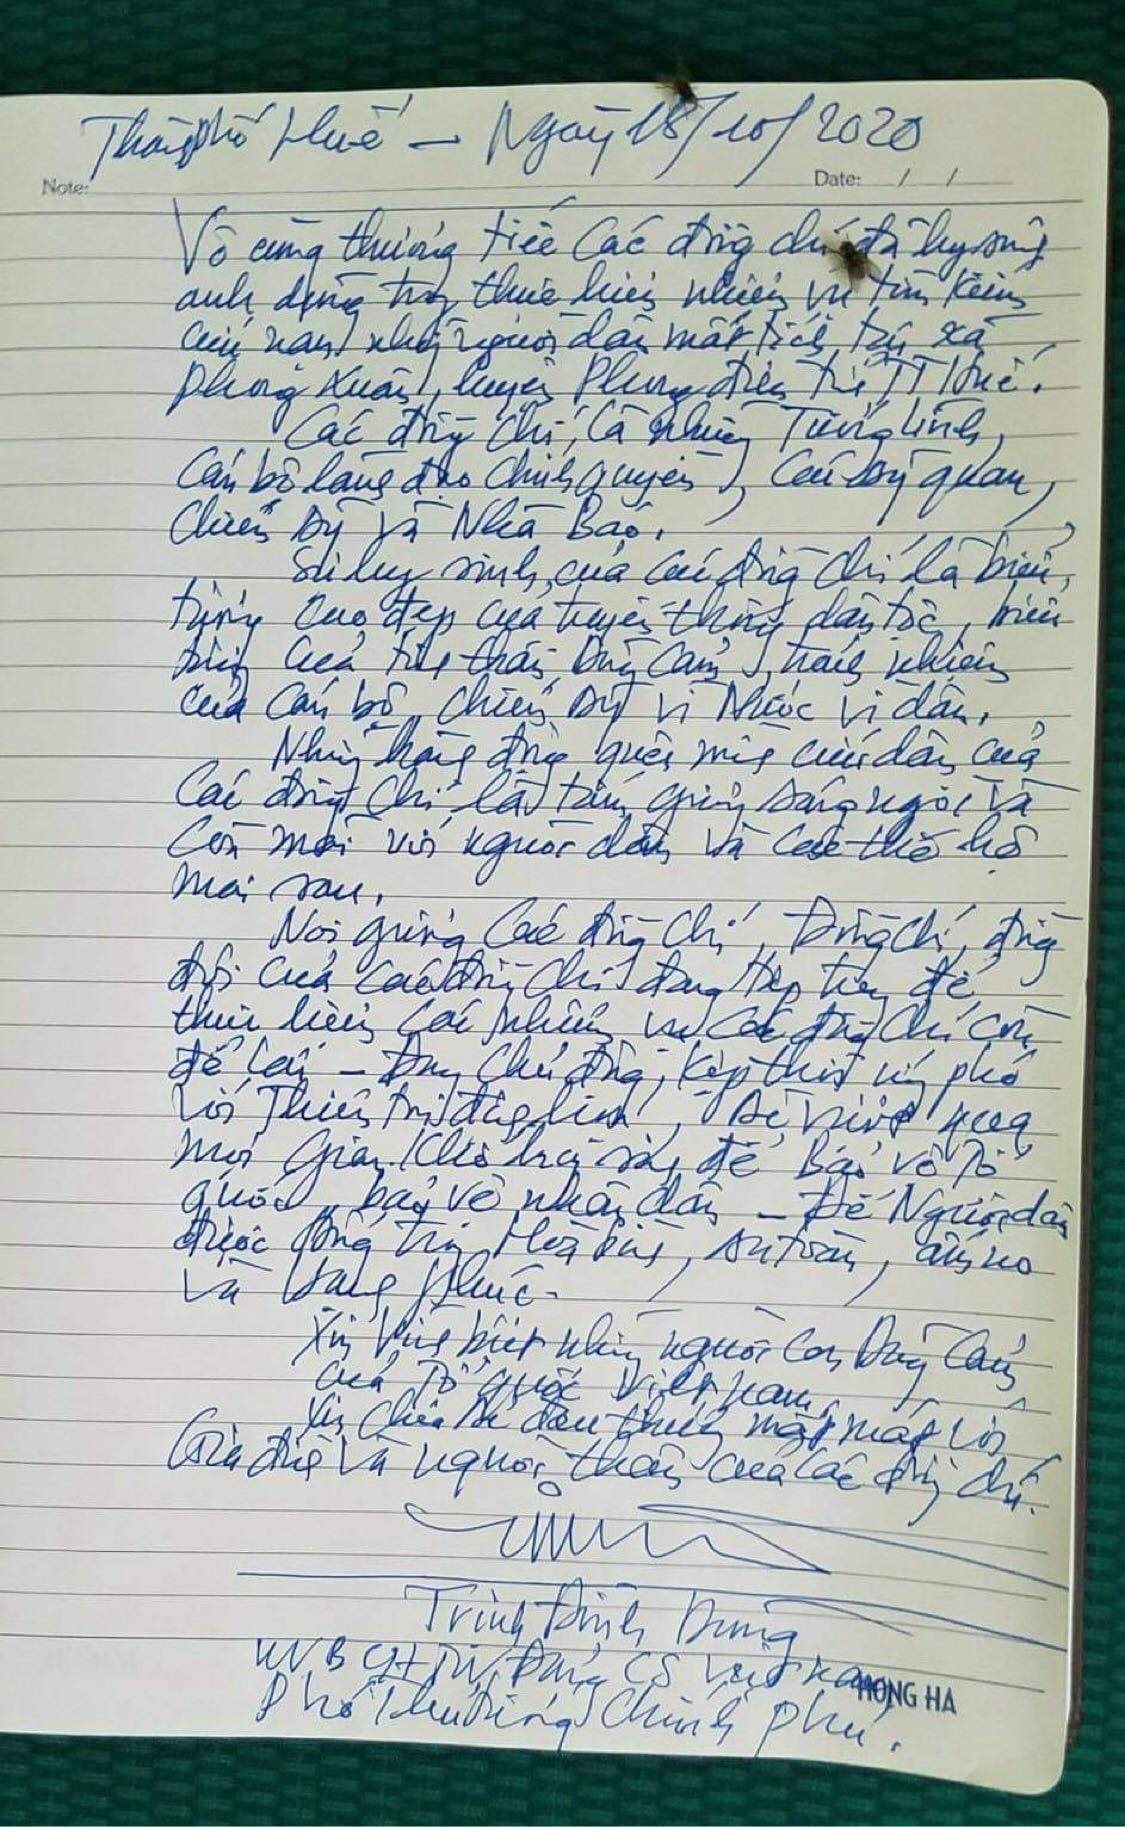 Thành phố Huế - Ngày 18/10/2020
Note:
Date: / /
Vô cùng thương tiếc Các đồng chí đã hy sinh
anh dũng trong thực hiện nhiệm vụ tìm kiếm
cứu nạn những người dân mất tích tại xã
Phong Xuân, huyện Phong điền tỉnh TT Huế.
Các đồng chí, là những Tướng lĩnh,
Cán bộ lãnh đạo chính quyền, các sỹ quan,
Chiến sỹ và Nhà Báo.
Sự hy sinh của các đồng chí là biểu
tượng cao đẹp của truyền thống dân tộc, biểu
tượng của tinh thần dũng cảm, trách nhiệm
của cán bộ, chiến sỹ vì Nước vì dân.
Những hành động quên mình cứu dân của
Các đồng chí là tấm gương sáng ngời và
Còn mãi với người dân và các thế hệ
mai sau.
Noi gương Các đồng chí, Đồng chí, đồng
đội của các đồng chí đang tiếp tục để
thực hiện các nhiệm vụ các đồng chí còn
để lại - Đang Chủ động, kịp thời ứng phó
với Thiên tai, Sẽ vượt qua
mọi gian khổ hy sinh để Bảo vệ Tổ
quốc, bảo vệ nhân dân - Để Người dân
được sống trong Hòa bình, an toàn, ấm no
và Hạnh phúc.
Xin Vĩnh biệt những người con Dũng Cảm
của Tổ quốc Việt nam.
Xin chia sẻ đau thương mất mát với
Gia đình và người thân của các đồng chí.
Trịnh Đình Dũng
UVBCHTW Đảng CS Việt Nam
HONG HA
Phó Thủ tướng Chính phủ.